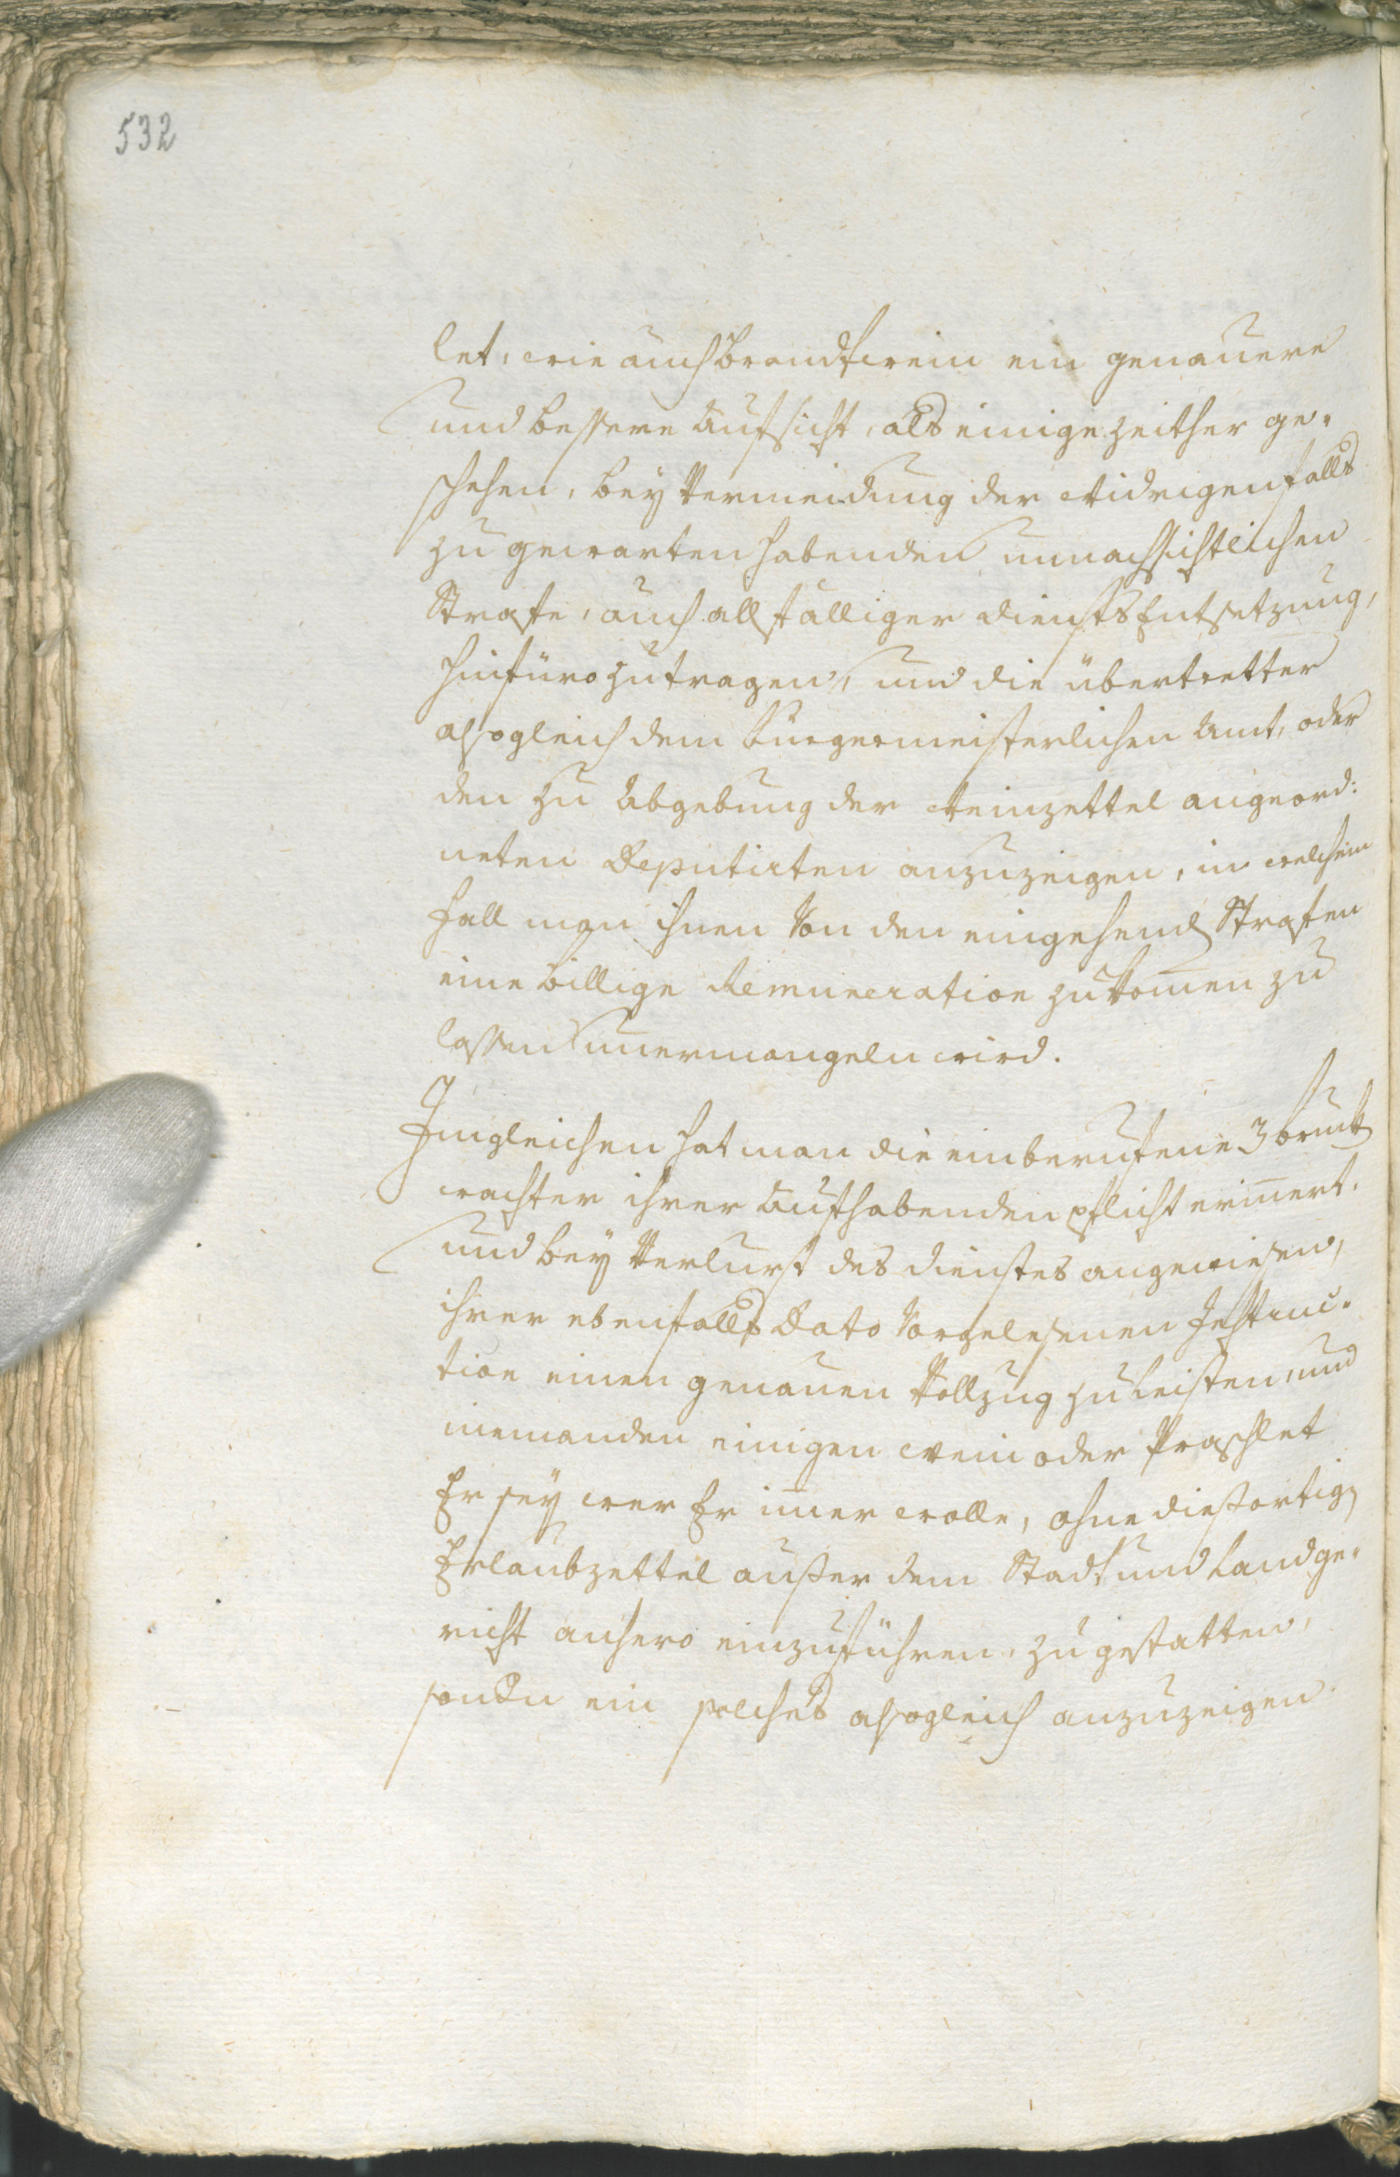 532
let, wie auch brandtwein ein genauere
und bessere Aufsicht, als einige zeither ge-
schehen, bey Vermeidung der widrigenfalls
zu gewarten habenden unnachsichtlichen
Strafe, auch allfälliger dienst Entsetzung,
hinfüro zu tragen, und die übertretter
alsogleich dem Burgermeisterlichen Amt, oder
den zu Abgebung der Weinzettel angeord:
neten Deputirten anzuzeigen, in welchem
fall man ihnen von den eingehend Strafen
eine billige Remuneration zukomen zu
lassen unermanglen wird.
Ingleichen hat man die einberufene 3 bruck
wachter ihrer Aufhabenden pflicht erinert,
und bey Verlurst des dienstes angewiesen,
ihrer ebenfalls Dato Vorgelesenen Instruc-
tion einen genauen Vollzug zu leisten, und
niemanden einigen wein oder Praschlet
Er sey wer Er imer wolle, ohne diesortig
Erlaubzettel ausser dem Stadt und Landge-
richt anhero einzuführen, zu gestatten,
sondn ein solches alsogleich anzuzeigen.